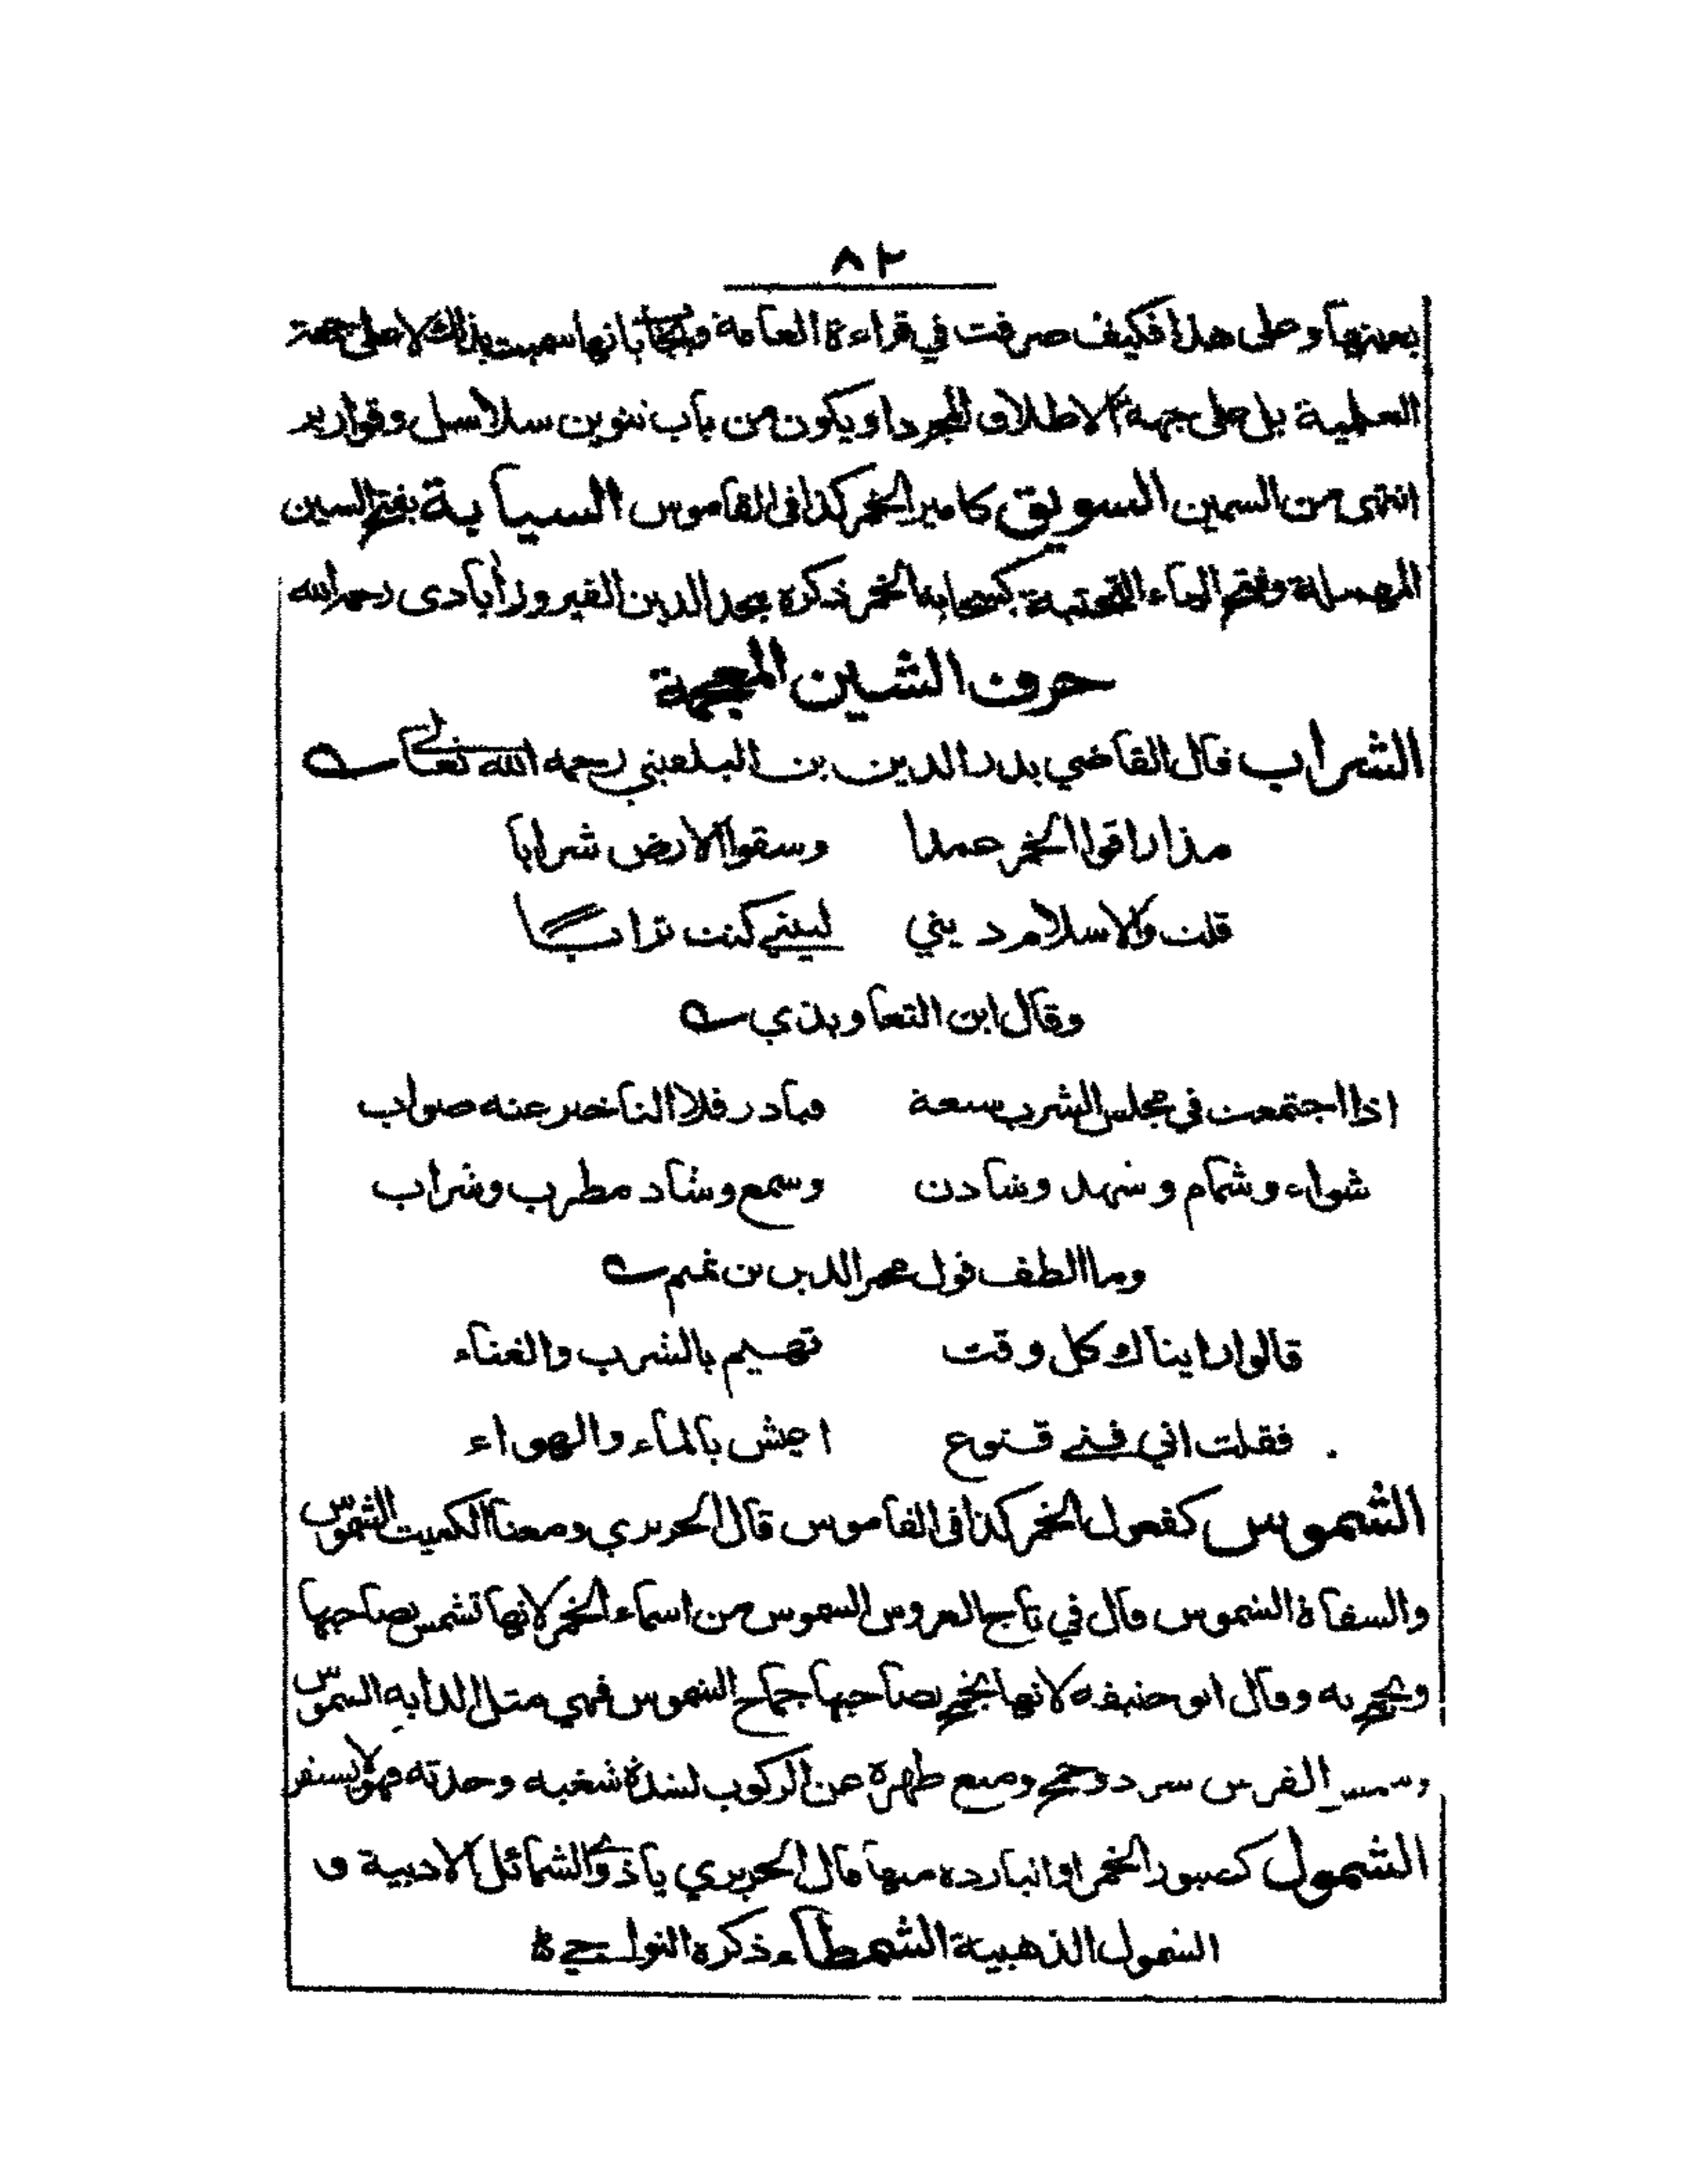 ٨٢
بعينها وعلى هذا فكيف صرفت في قراءة العامة ويجاب بانها سميت بذلك لا على جهة
العلمية بل على جهة الاطلاق المجرد او يكون من باب تنوين سلاسل وقوارير
انتهى من السمين السويق كامير الخمر كذا فى القاموس السياية بفتح السين
المهملة وفتح الياء التحتية كسحابة الخمر ذكره مجد الدين الفيروزابادى رحمه الله
حرف الشين المعجمة
الشراب قال القاضي بدر الدين بن البلعيني رحمه الله تعالى
مذ اراقوا الخمر عمدا وسقوا الارض شرابا
قلت والاسلام ديني ليتني كنت ترابا
وقال ابن التعاويذي
اذا اجتمعت في مجلس الشرب سعة فبادر فلا التاخير عنه صواب
شواء وشمام وشهد وشادن وسمع وشاد مطرب وشراب
وما الطف قول مجير الدين بن تميم
قالوا رايناك كل وقت تهيم بالشرب والغناء
فقلت اني فتى قنوع اعيش بالماء والهواء
الشموس كفعول الخمر كذا فى القاموس قال الحريري ومعنا الكميت الشموس
والسقاة الشموس قال في تاج العروس الشموس من اسماء الخمر لانها تشمس بصاحبها
وتجمح به وقال ابو حنيفة لانها تجمح بصاحبها جماح الشموس فهي مثل الدابه الشموس
وشمس الفرس شرد وجمح ومنع ظهره عن الركوب لشدة شغبه وحدته فهو لا يستقر
الشمول كصبور الخمر او الباردة منها قال الحريري ياذوي الشمائل الادبية و
الشمول الذهبية الشمطاء ذكره النواجي ة